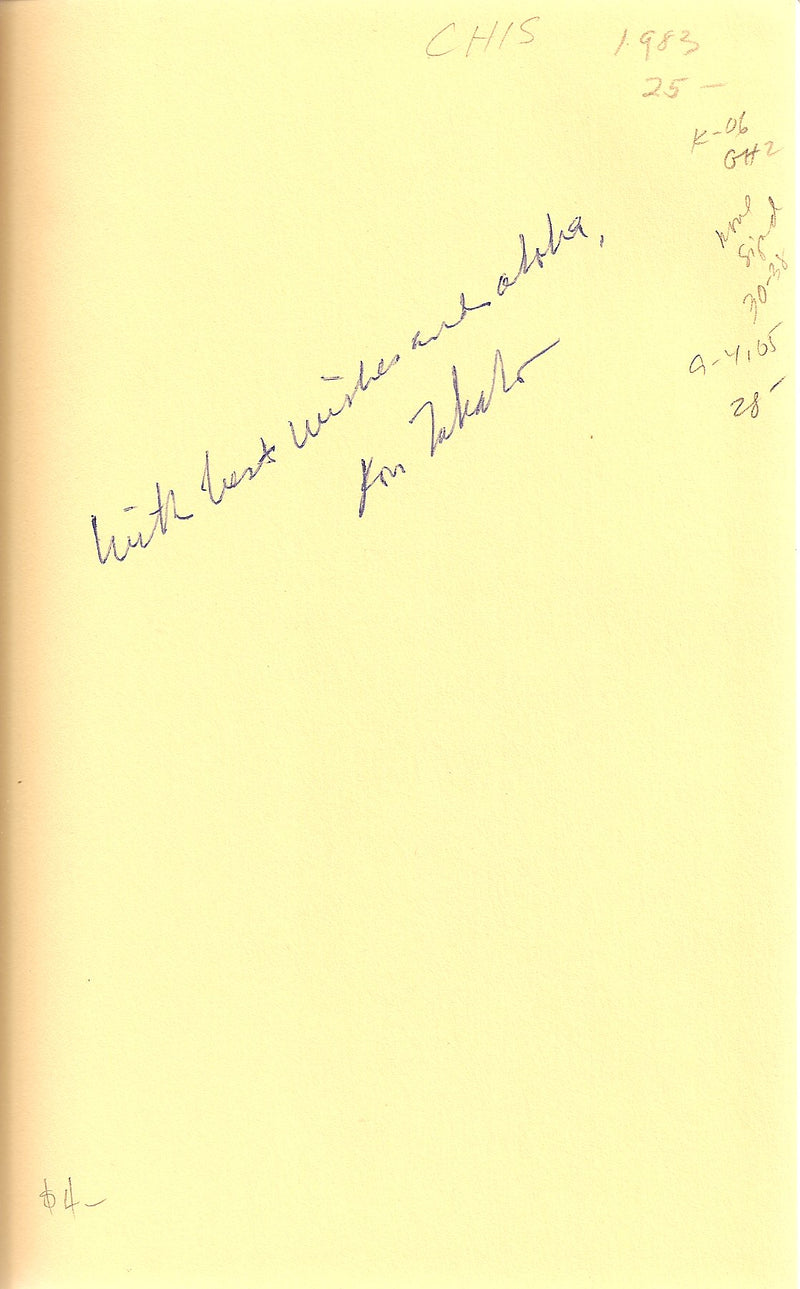 CHIS 1983
25 —
K-06
GH2
Signd
30-38
9-4,05
28 —
With best wishes and aloha,
Ron Takaki
$4 —